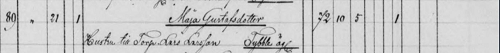 89 " 21 1 Maja Gustafsdotter 72 10 5 1
Hustru till Torp. Lars Larsson